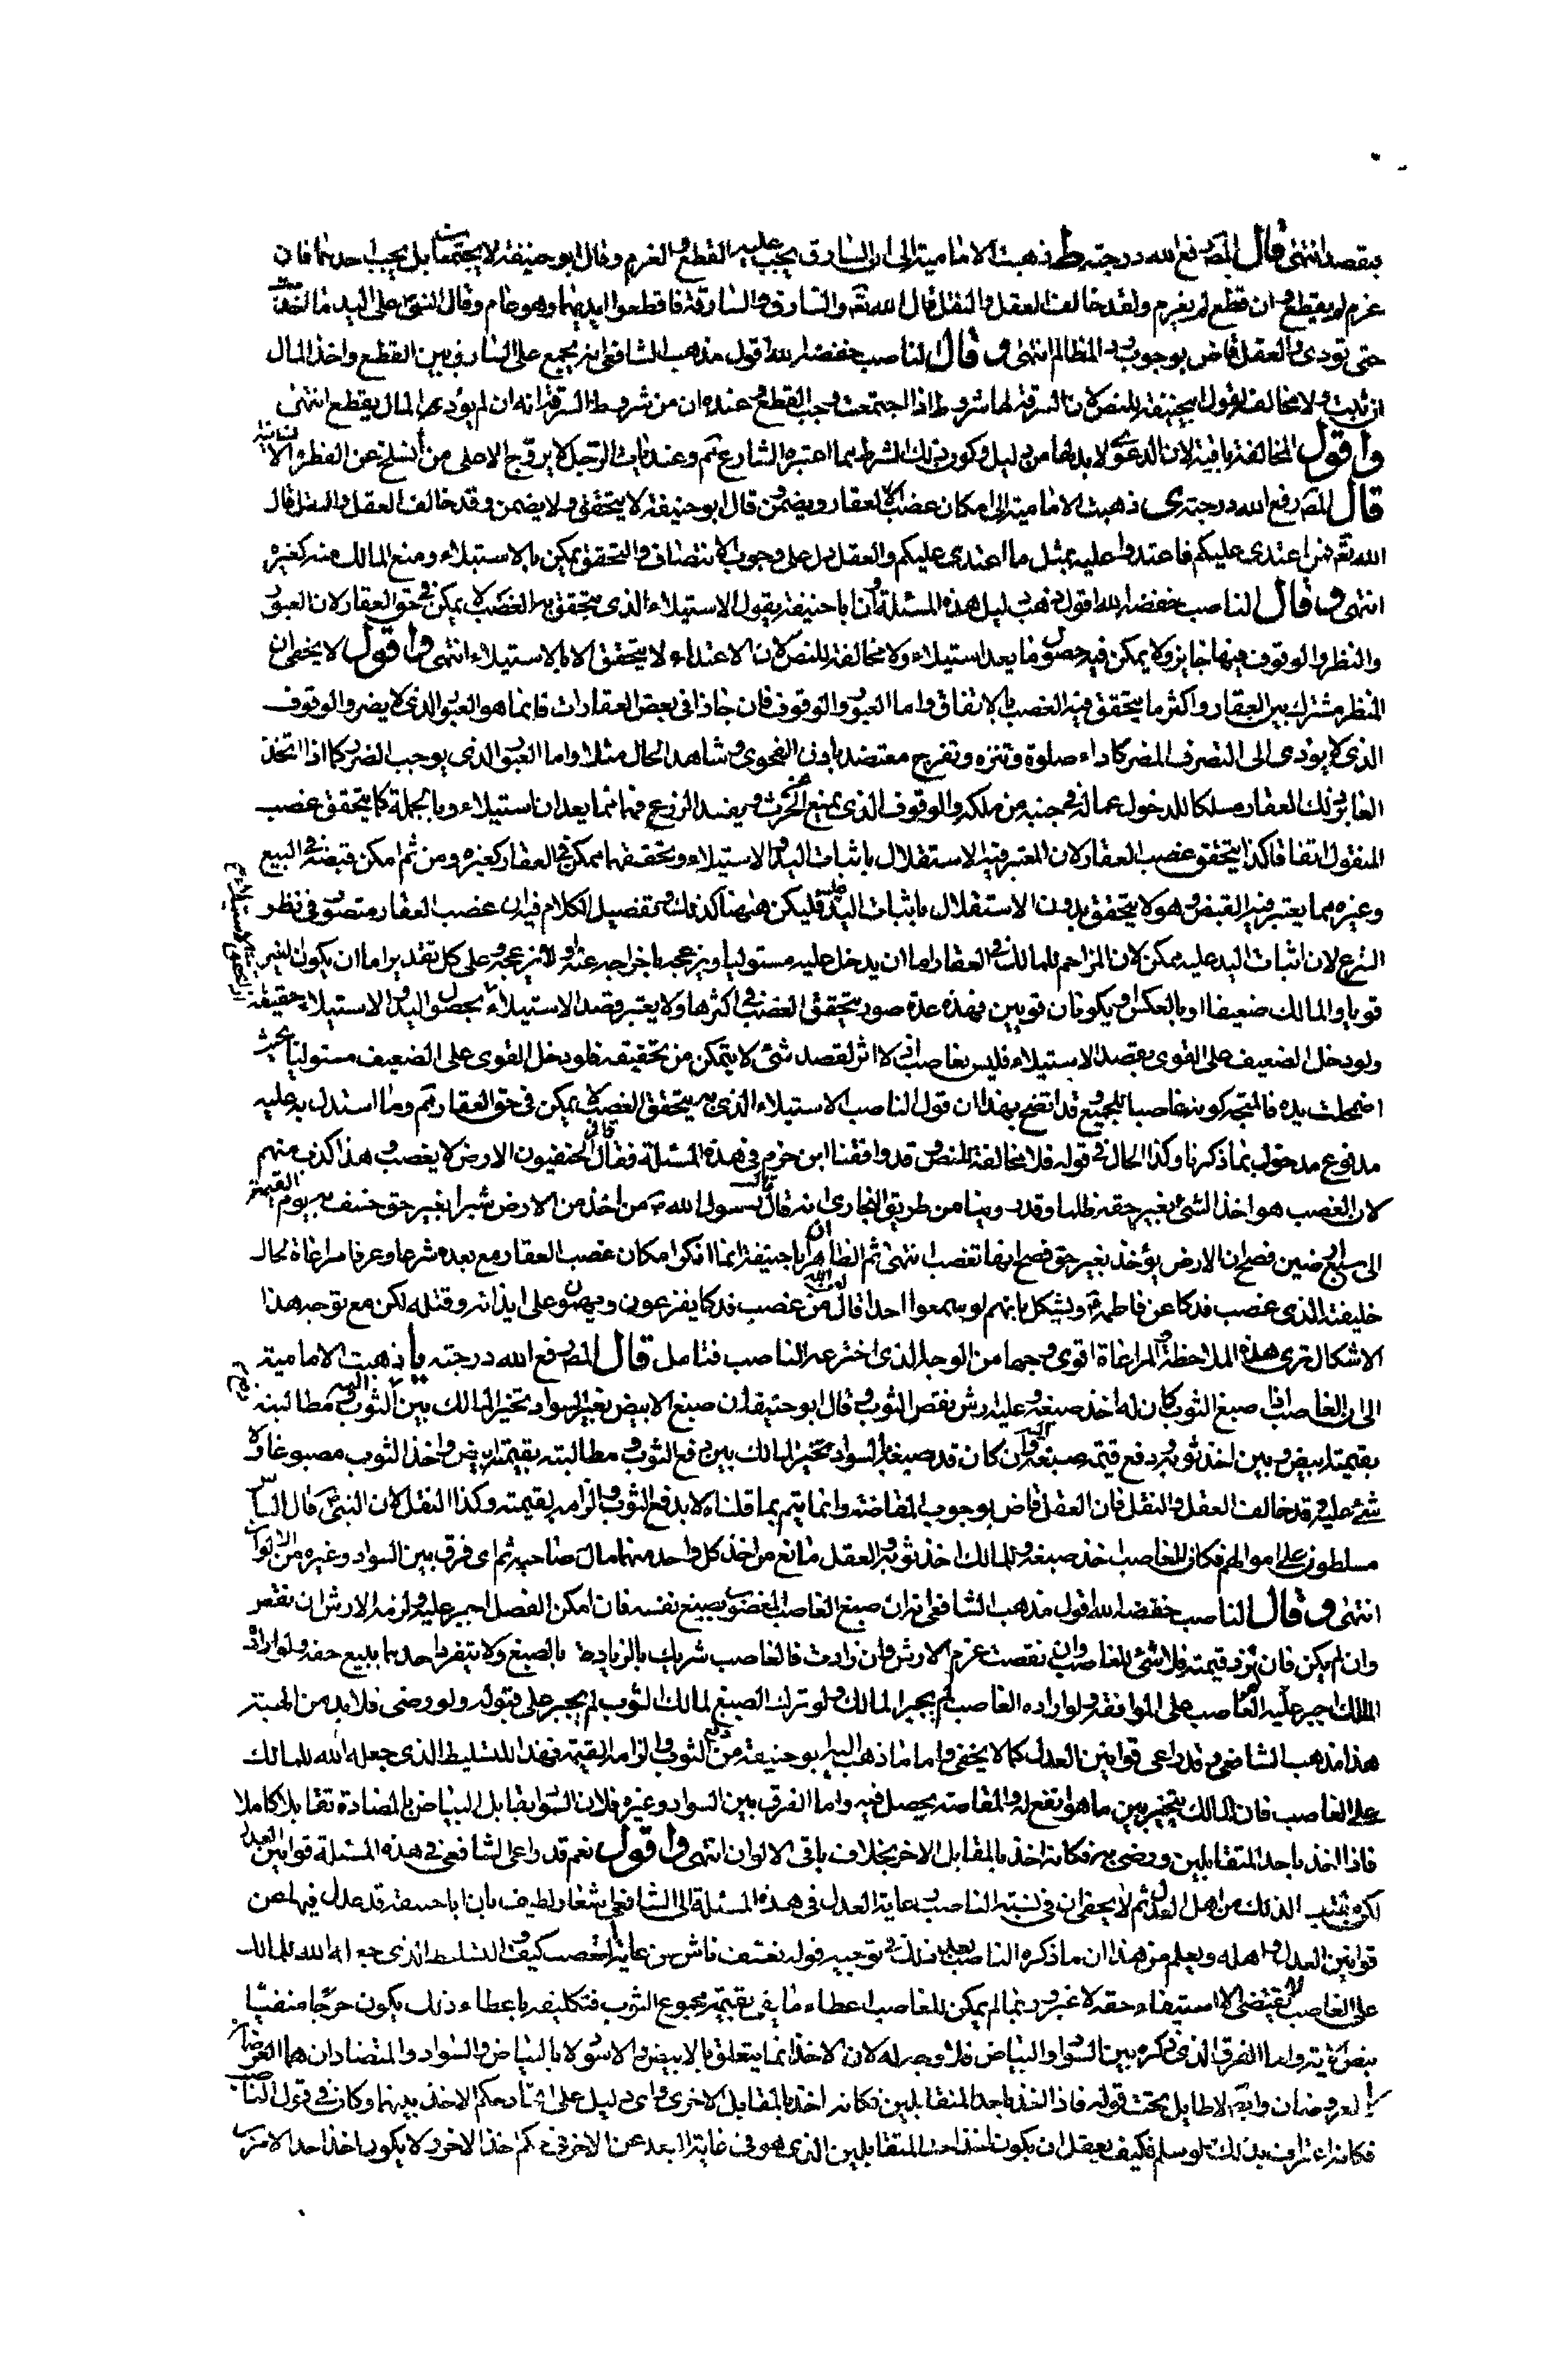 بقصد انتهى قال المص رفع الله درجته ط ذهبت الامامية الى ان السارق يجب عليه القطع و الغرم وقال ابو حنيفة لا يجتمعان بل يجب احدهما فان
غرم لم يقطع و ان قطع لم يغرم ولقد خالف العقل والنقل قال الله تعٰ والسارق والسارقة فاقطعوا ايديهما وهو عام وقال النبى ص على اليد ما اخذت
حتى تؤدى والعقل قاض بوجوب رد المظالم انتهى و قال الناصب خفضه الله اقول مذهب الشافعى انه يجمع على السارق بين القطع واخذ المال
ان ثبت ولا مخالفة لقول ابيحنيفة للنص لان السرقة لها شروط اذا اجتمعت وجب القطع و عنده ان من شروط السرقة انه ان لم يؤدى المال يقطع انتهى
واقول المخالفة باقية لان الدعوى لا بد لها من دليل وكون ذلك الشرط مما اعتبره الشارع ثم وعنديات الرجل لا يروج الا على من انسلخ عن الفطرة الانسانية
قال المص رفع الله درجته ى ذهبت الامامية الى امكان غصب العقار ويضمن و قال ابو حنيفة لا يتحقق ولا يضمن وقد خالف العقل والنقل قال
الله تعٰ فمن اعتدى عليكم فاعتدوا عليه بمثل ما اعتدى عليكم والعقل دل على وجوب الانتصاف والتحقق يمكن بالاستيلاء ومنع المالك منه كغيره
انتهى و قال الناصب خفضه الله اقول ذهب دليل هذه المسئلة و ان ابا حنيفة يقول الاستيلاء الذى يتحقق به الغصب لا يمكن فى حق العقار لان العبور
والنظر والوقوف فيها جايز ولا يمكن فيه حصول ما يعد استيلاء ولا مخالفة للنص لان الاعتداء لا يتحقق الا بالاستيلاء انتهى واقول لا يخفى ان
النظر مشترك بين العقار واكثر ما يتحقق فيه الغصب بالاتفاق واما العبور والوقوف فان جاز فى بعض العقارات فانما هو العبور الذى لا يضر والوقوف
الذى لا يؤدى الى التصرف المضر كاداء صلوة وتنزه وتفرج معتضد باذن الفحوى و شاهد الحال مثلا واما العبور الذى يوجب الضرر كما اذا اتخذ
العابر ذلك العقار مسلكا للدخول عماله فى جنبه من ملكه والوقوف الذى يمنع عن الحرث ويفسد الزرع فهما مما يعدان استيلاء وبالجملة كما يتحقق غصب
المنقول اتفاقا كذا يتحقق غصب العقار لان المعتبر فيه الاستقلال باثبات اليد و الاستيلاء وتحققهما ممكن فى العقار كغيره ومن ثم امكن قبضه فى البيع
وغيره مما يعتبر فيه القبض و هو لا يتحقق بدون الاستقلال باثبات اليد عليه فليكن هيهنا كذلك و تفصيل الكلام فيه ان غصب العقار متصور فى نظر
الشرع لان اثبات اليد عليه يمكن لان المزاحم للمالك فى العقار اما ان يدخل عليه مستوليا ويزعجه باخراجه عنه او لا يزعجه و على كل تقدير اما ان يكون الغير
قويا والمالك ضعيفا او بالعكس او يكونان قويين فهذه عدة صور يتحقق الغصب فى اكثرها ولا يعتبر قصد الاستيلاء بحصول اليد و الاستيلاء حقيقة
ولو دخل الضعيف على القوى بقصد الاستيلاء فليس بغاصب اذ لا اثر لقصد شئ لا يتمكن من تحقيقه فلو دخل القوى على الضعيف مستوليا بحيث
اضمحلت يده فالمتجه كونه غاصبا للجميع و قد اتضح بهذا ان قول الناصب الاستيلاء الذى به يتحقق الغصب لا يمكن فى حق العقار ثم وما استدل به عليه
مدفوع مدخول بما ذكرنا وكذا الحال فى قوله فلا مخالفة للنص و قد وافقنا ابن حزم فى هذه المسئلة فقال قال الحنفيون الارض لا يغصب و هذا كذب منهم
لان الغصب هو اخذ الشئ بغير حقه ظلما وقد روينا من طريق البخارى انه قال قال رسول الله ص من اخذ من الارض شبرا بغير حق خسف به يوم القيمة
الى سبع ارضين فصح ان الارض يؤخذ بغير حق فصح انها تغصب انتهى ثم الظاهر ان ابا حنيفة انما انكر امكان غصب العقار مع بعده شرعا وعرفا مراعاة لحال
خليفته الذى غصب فدكا عن فاطمة ع ويشكل بانهم لو سمعوا احدا قال لعن الله من غصب فدكا يفزعون ويهمون على ايذائه وقتله لكن مع توجه هذا
الاشكال ترى هذه الملاحظة و المراعاة اقوى وجها من الوجه الذى اخترعه الناصب فتامل قال المص رفع الله درجته يا ذهبت الامامية
الى ان الغاصب اذا صبغ الثوب كان له اخذ صبغه و عليه ارش نقص الثوب و قال ابو حنيفة ان صبغ الابيض بغير السواد تخير المالك بين دفع الثوب اليه و مطالبته
بقيمته ابيض و بين اخذ ثوبه و دفع قيمة صبغه اليه و ان كان قد صبغه بالسواد تخير المالك بين دفع الثوب و مطالبته بقيمته ابيض و اخذ الثوب مصبوغا ولا
شئ عليه و قد خالف العقل والنقل فان العقل قاض بوجوب المقاصة وانما يتم بما قلناه لا بدفع الثوب و الزامه بقيمته وكذا النقل لان النبى ص قال الناس
مسلطون على اموالهم فكان للغاصب اخذ صبغه و للمالك اخذ ثوبه و العقل مانع من اخذ كل واحد منهما مال صاحبه ثم اى فرق بين السواد وغيره من الالوان
انتهى و قال الناصب خفضه الله اقول مذهب الشافعى انه ان صبغ الغاصب المغصوب بصبغ نفسه فان امكن الفصل اجبر عليه و لزمه الارش ان نقص
وان لم يكن فان لم تزد قيمته فلا شئ للغاصب وان نقصت غرم الارش وان زادت فالغاصب شريك بالزيادة بالصبغ ولا يتفرد احدهما ببيع حقه ولو اراده
المالك اجبر عليه الغاصب على الموافقة و لو اراده الغاصب لم يجبر المالك و لو ترك الصبغ لمالك الثوب لم يجبر على قبوله ولو رضى فلا بد من الهبة
هذا مذهب الشافعى و قد راعى قوانين العدل كما لا يخفى و اما ما ذهب اليه ابو حنيفة من دفع الثوب و الزامه القيمة فهذا للتسليط الذى جعله الله للمالك
على الغاصب فان المالك يتخير بين ما هو انفع له و المقاصة يحصل فيه واما الفرق بين السواد وغيره فلان السواد يقابل البياض بالمضادة تقابلا كاملا
فاذا اخذ باحد المتقابلين ورضى به فكانه اخذ بالمقابل الاخر بخلاف باقى الالوان انتهى واقول نعم قد راعى الشافعى فى هذه المسئلة قوانين العدل
ثم لا يخفى ان فى نسبة الناصب رعاية العدل فى هذه المسئلة الى الشافعى اشعار لطيف بان ابا حنيفة قد عدل فيها عن
قوانين العدل و اهله ويعلم من هذا ان ما ذكره الناصب بعد ذلك فى توجيه قوله تعسف ناش من غاية التعصب كيف و التسليط الذى جعله الله للمالك
على الغاصب لا يقتضى الا استيفاء حقه لا غير و ربما لم يمكن للغاصب اعطاء ما يفى بقيمة مجموع الثوب فتكليفه باعطاء ذلك يكون حرجا منفيا
واما الفرق الذى ذكره بين السواد و البياض فلا وجه له لان الاخذ انما يتعلق بالابيض و الاسود لا بالبياض و السواد والمتضادان هما العرضان
لا المعروضان وايض لا طايل تحت قوله فاذا اخذ باحد المتقابلين فكانه اخذ بالمقابل الاخر و اى دليل على اتحاد حكم الاخذ بينهما وكان فى قول الناصب
فكانه اعتراف بذلك و لو سلم فكيف يعقل ان يكون اخذ احد المتقابلين الذى هو فى غاية البعد عن الاخر فى حكم اخذ الاخر ولا يكون اخذ احد الامرين